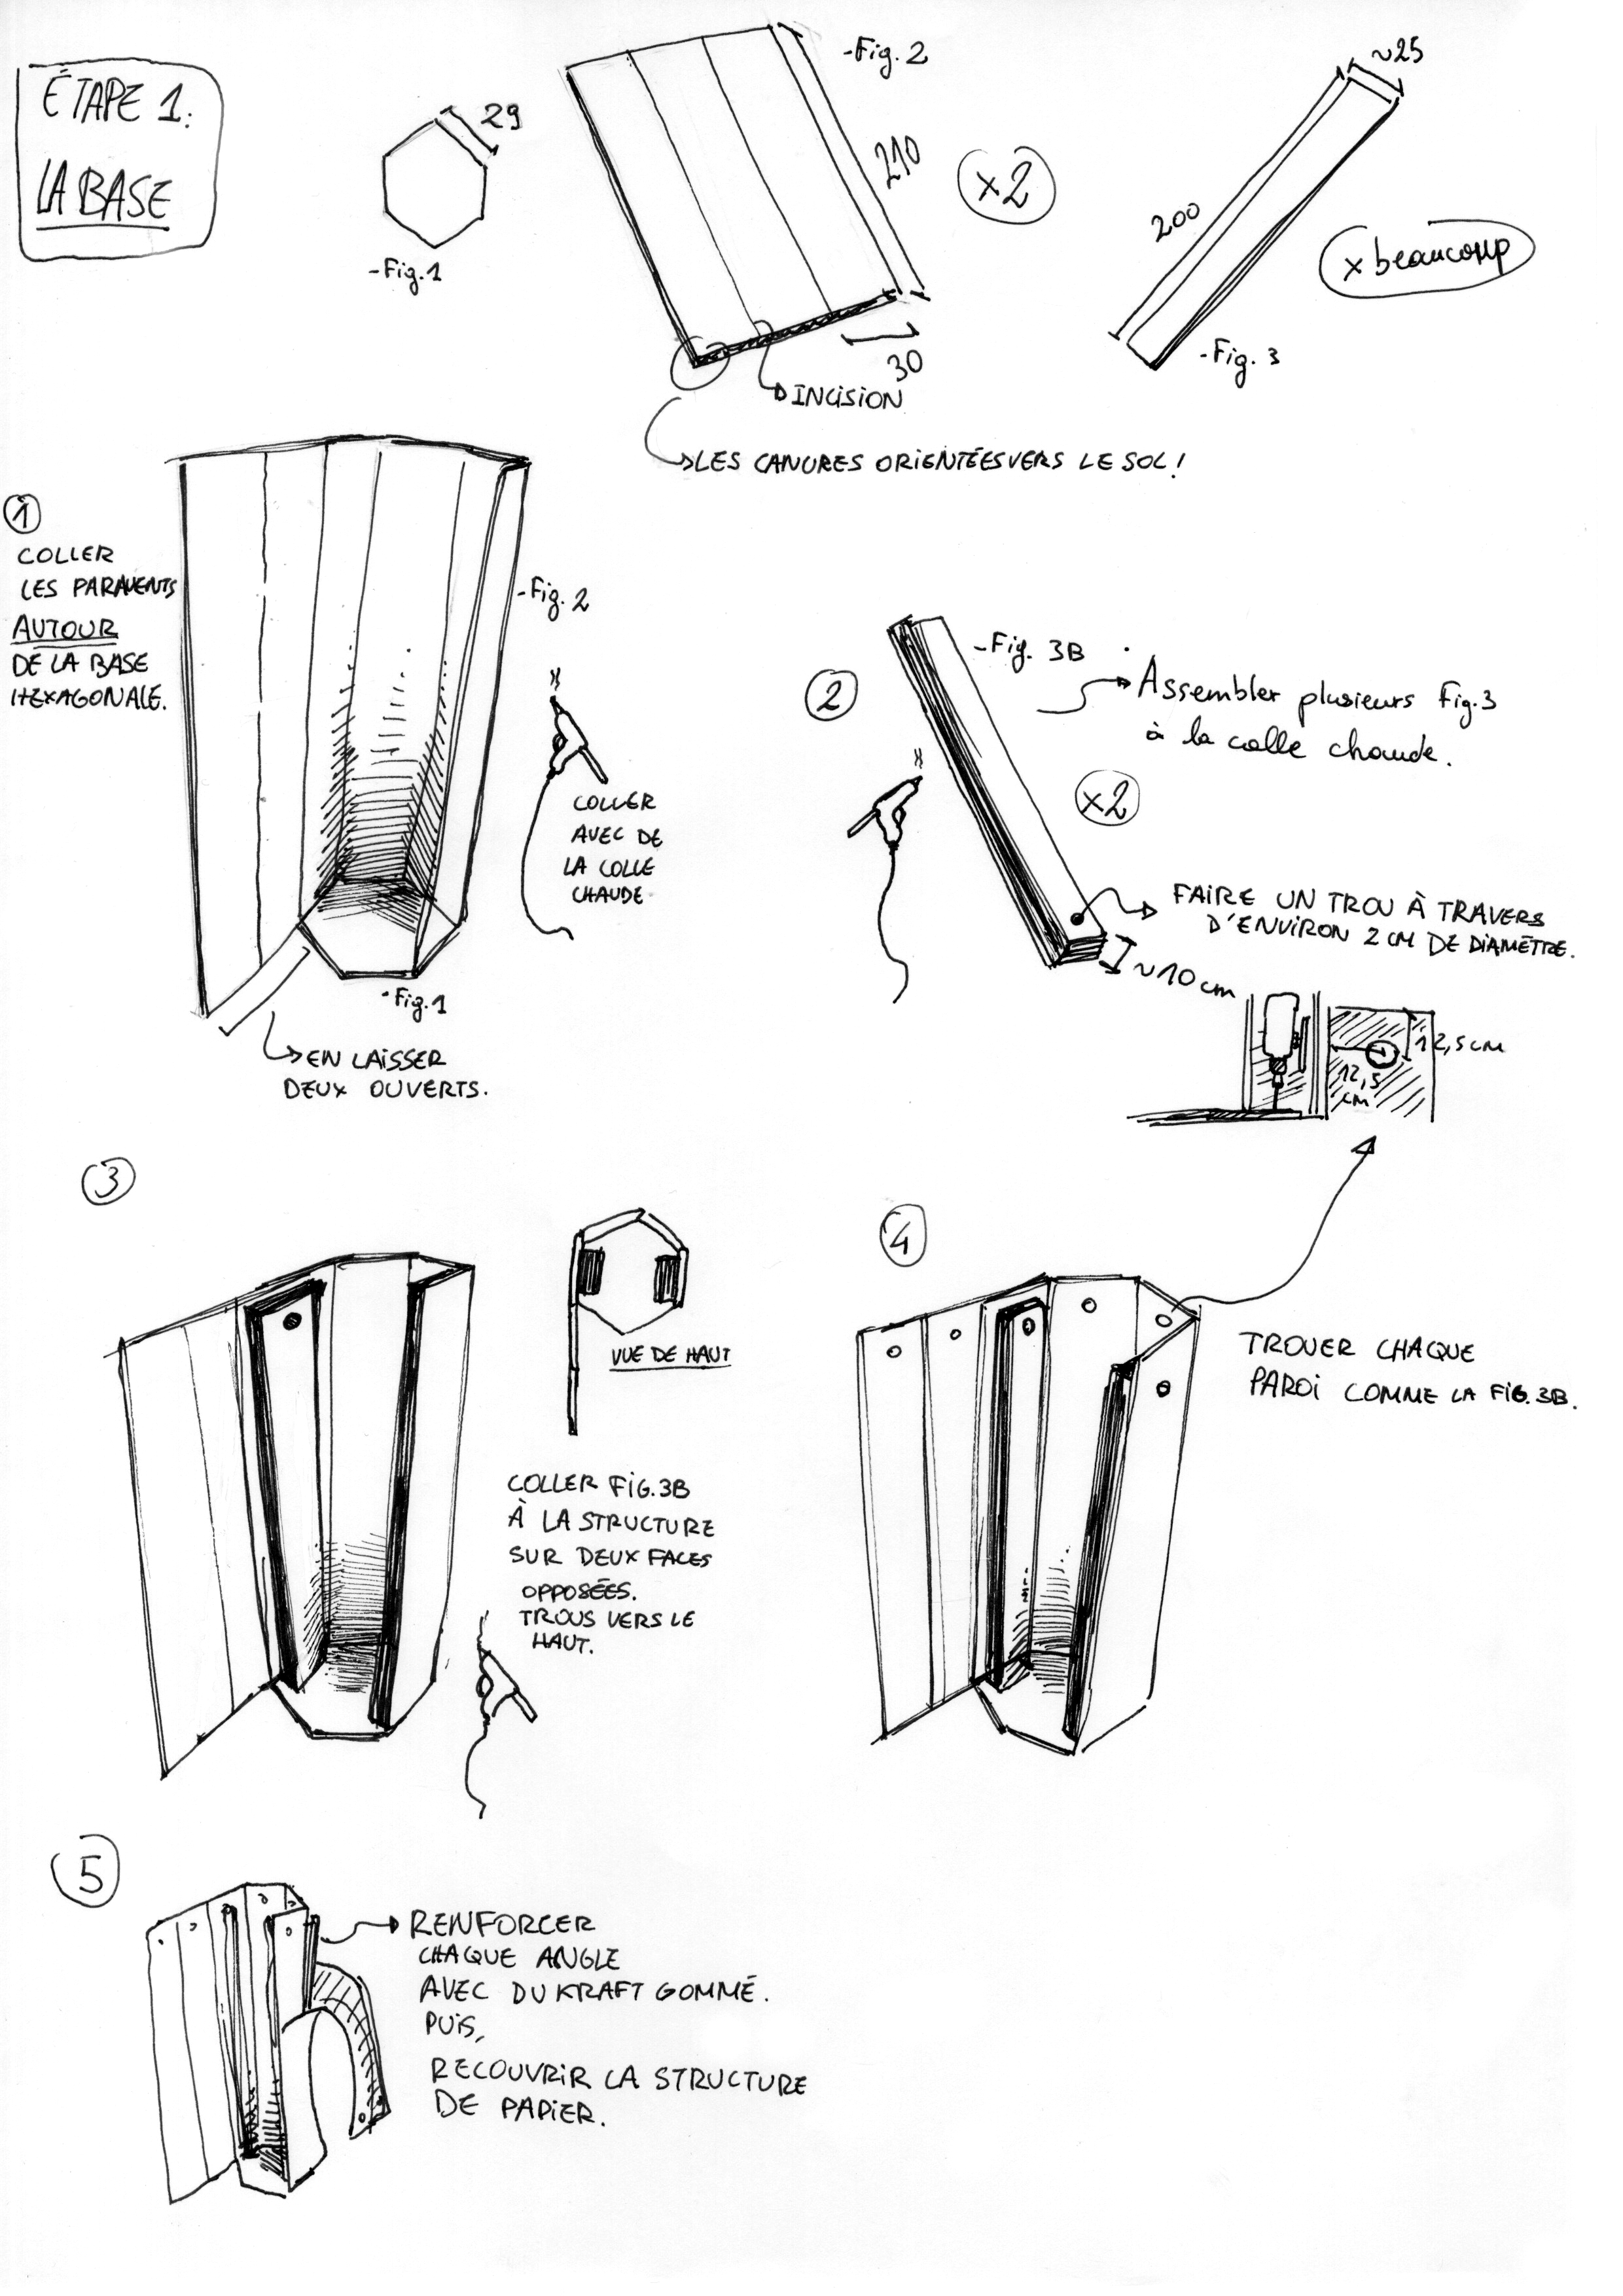 ÉTAPE 1:
LA BASE
29
-Fig.1
-Fig. 2
210
x2
30
INCISION
LES CANURES ORIENTÉES VERS LE SOL!
~25
200
x beaucoup
-Fig. 3
1
COLLER
LES PARAVENTS
AUTOUR
DE LA BASE
HEXAGONALE.
-Fig. 2
COLLER
AVEC DE
LA COLLE
CHAUDE
-Fig.1
EN LAISSER
DEUX OUVERTS.
2
-Fig. 3B
Assembler plusieurs Fig.3
à la colle chaude.
x2
FAIRE UN TROU À TRAVERS
D'ENVIRON 2 CM DE DIAMÈTRE.
~10 cm
12,5 CM
12,5
CM
3
VUE DE HAUT
COLLER FIG.3B
À LA STRUCTURE
SUR DEUX FACES
OPPOSÉES.
TROUS VERS LE
HAUT.
4
TROUER CHAQUE
PAROI COMME LA FIG.3B.
5
RENFORCER
CHAQUE ANGLE
AVEC DU KRAFT GOMMÉ.
PUIS,
RECOUVRIR LA STRUCTURE
DE PAPIER.